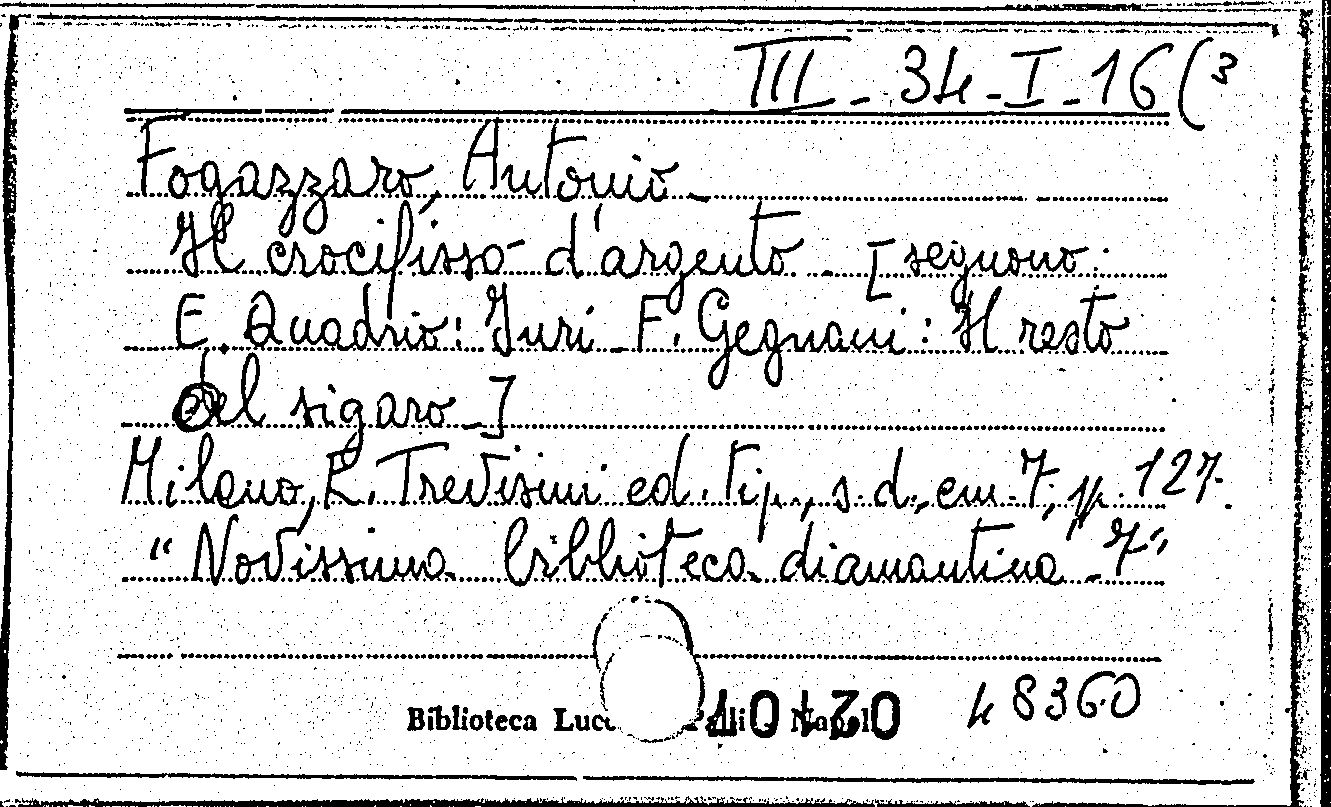 III - 34 - I - 16 (3
Fogazzaro, Antonio -
Il crocifisso d'argento - [seguono:
E. Quadrio: Juri F. Gegnani: Il resto
del sigaro -]
Milano, E. Trevisini ed. tip., s.d., cm. 7, pp. 127.
"Novissima biblioteca diamantina - 7"
Biblioteca
48360